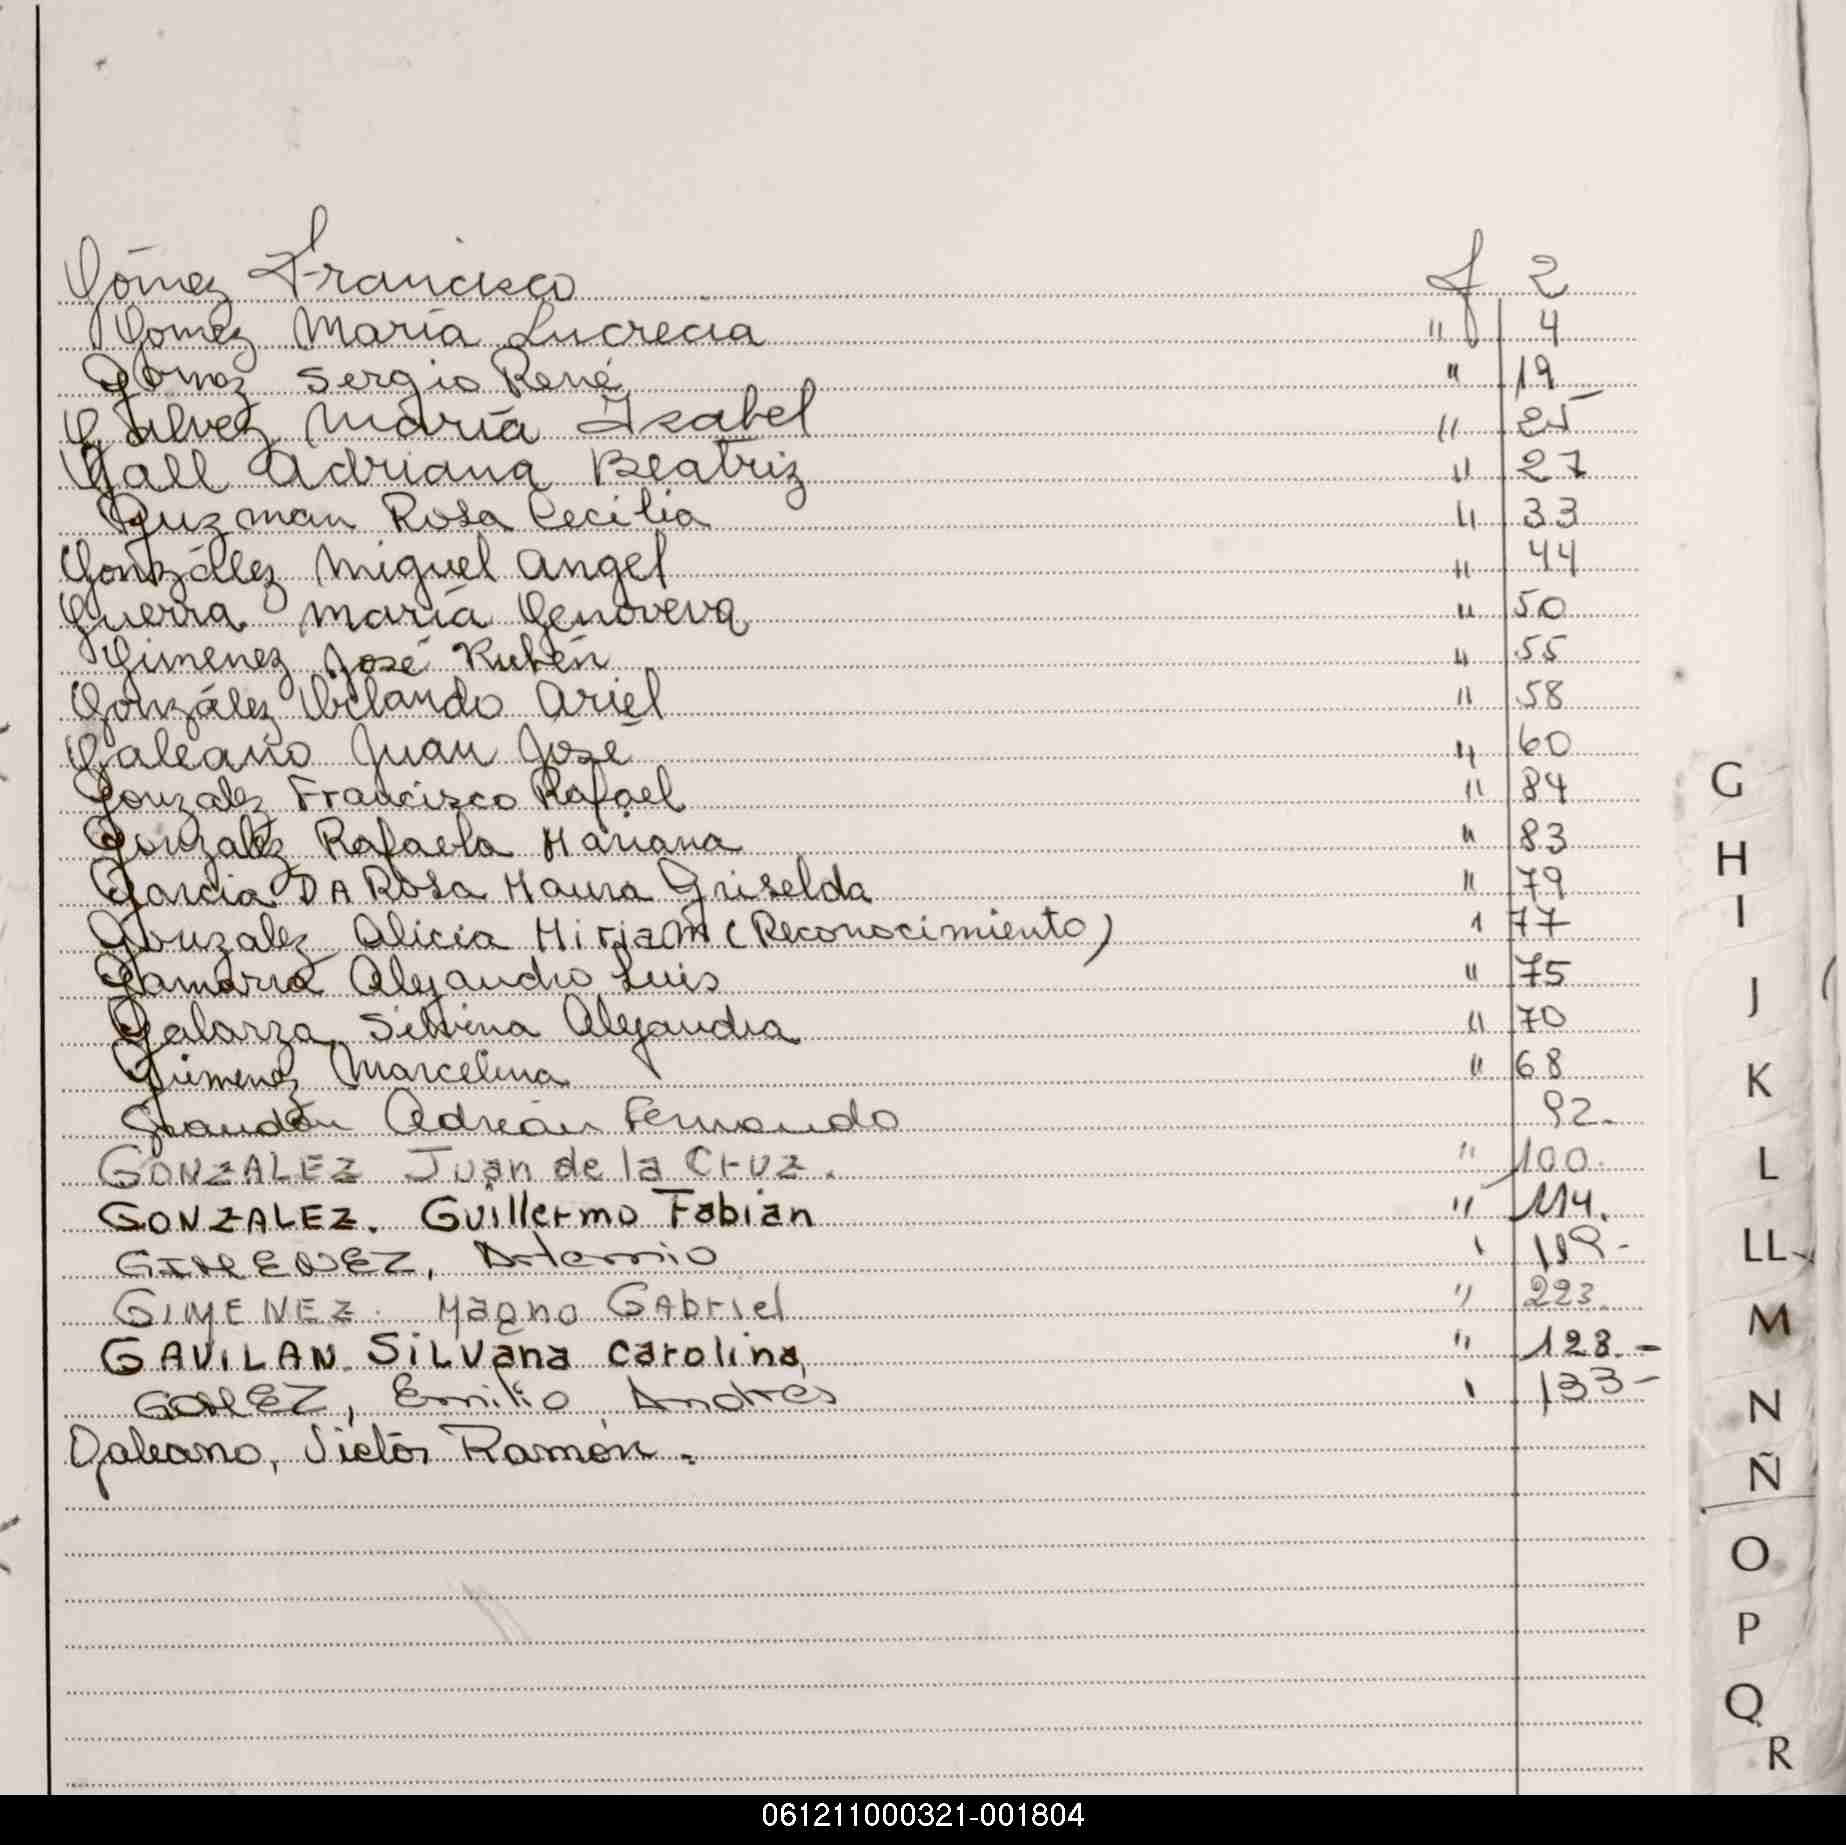 Gómez Francisco f 2
Gomez María Lucrecia " 4
Gomez Sergio René " 19
Galvez María Isabel " 25
Gall Adriana Beatriz " 27
Guzman Rosa Cecilia " 33
González Miguel Angel " 44
Guerra María Genoveva " 50
Gimenez José Rubén " 55
González Orlando Ariel " 58
Galeano Juan José " 60
Gonzalez Francisco Rafael " 84
Gonzalez Rafaela Mariana " 83
Garcia DA Rosa Maura Griselda " 79
Gonzalez Alicia Miriam (Reconocimiento) " 77
Gamarra Alejandro Luis " 75
Galarza Silvina Alejandra " 70
Gimenez Marcelina " 68
Grandón Adrián Fernando 92.
GONZALEZ Juan de la Cruz. " 100.
GONZALEZ. Guillermo Fabian " 114.
GIMENEZ, Artemio ' 119-
GIMENEZ. Magno GAbriel " 223.
GAVILAN. SiLVana carolina, " 128.-
GOMEZ, Emilio Andrés ' 133-
Galeano, Victor Ramón.
G
H
I
J
K
L
LL
M
N
Ñ
O
P
Q
R
061211000321-001804